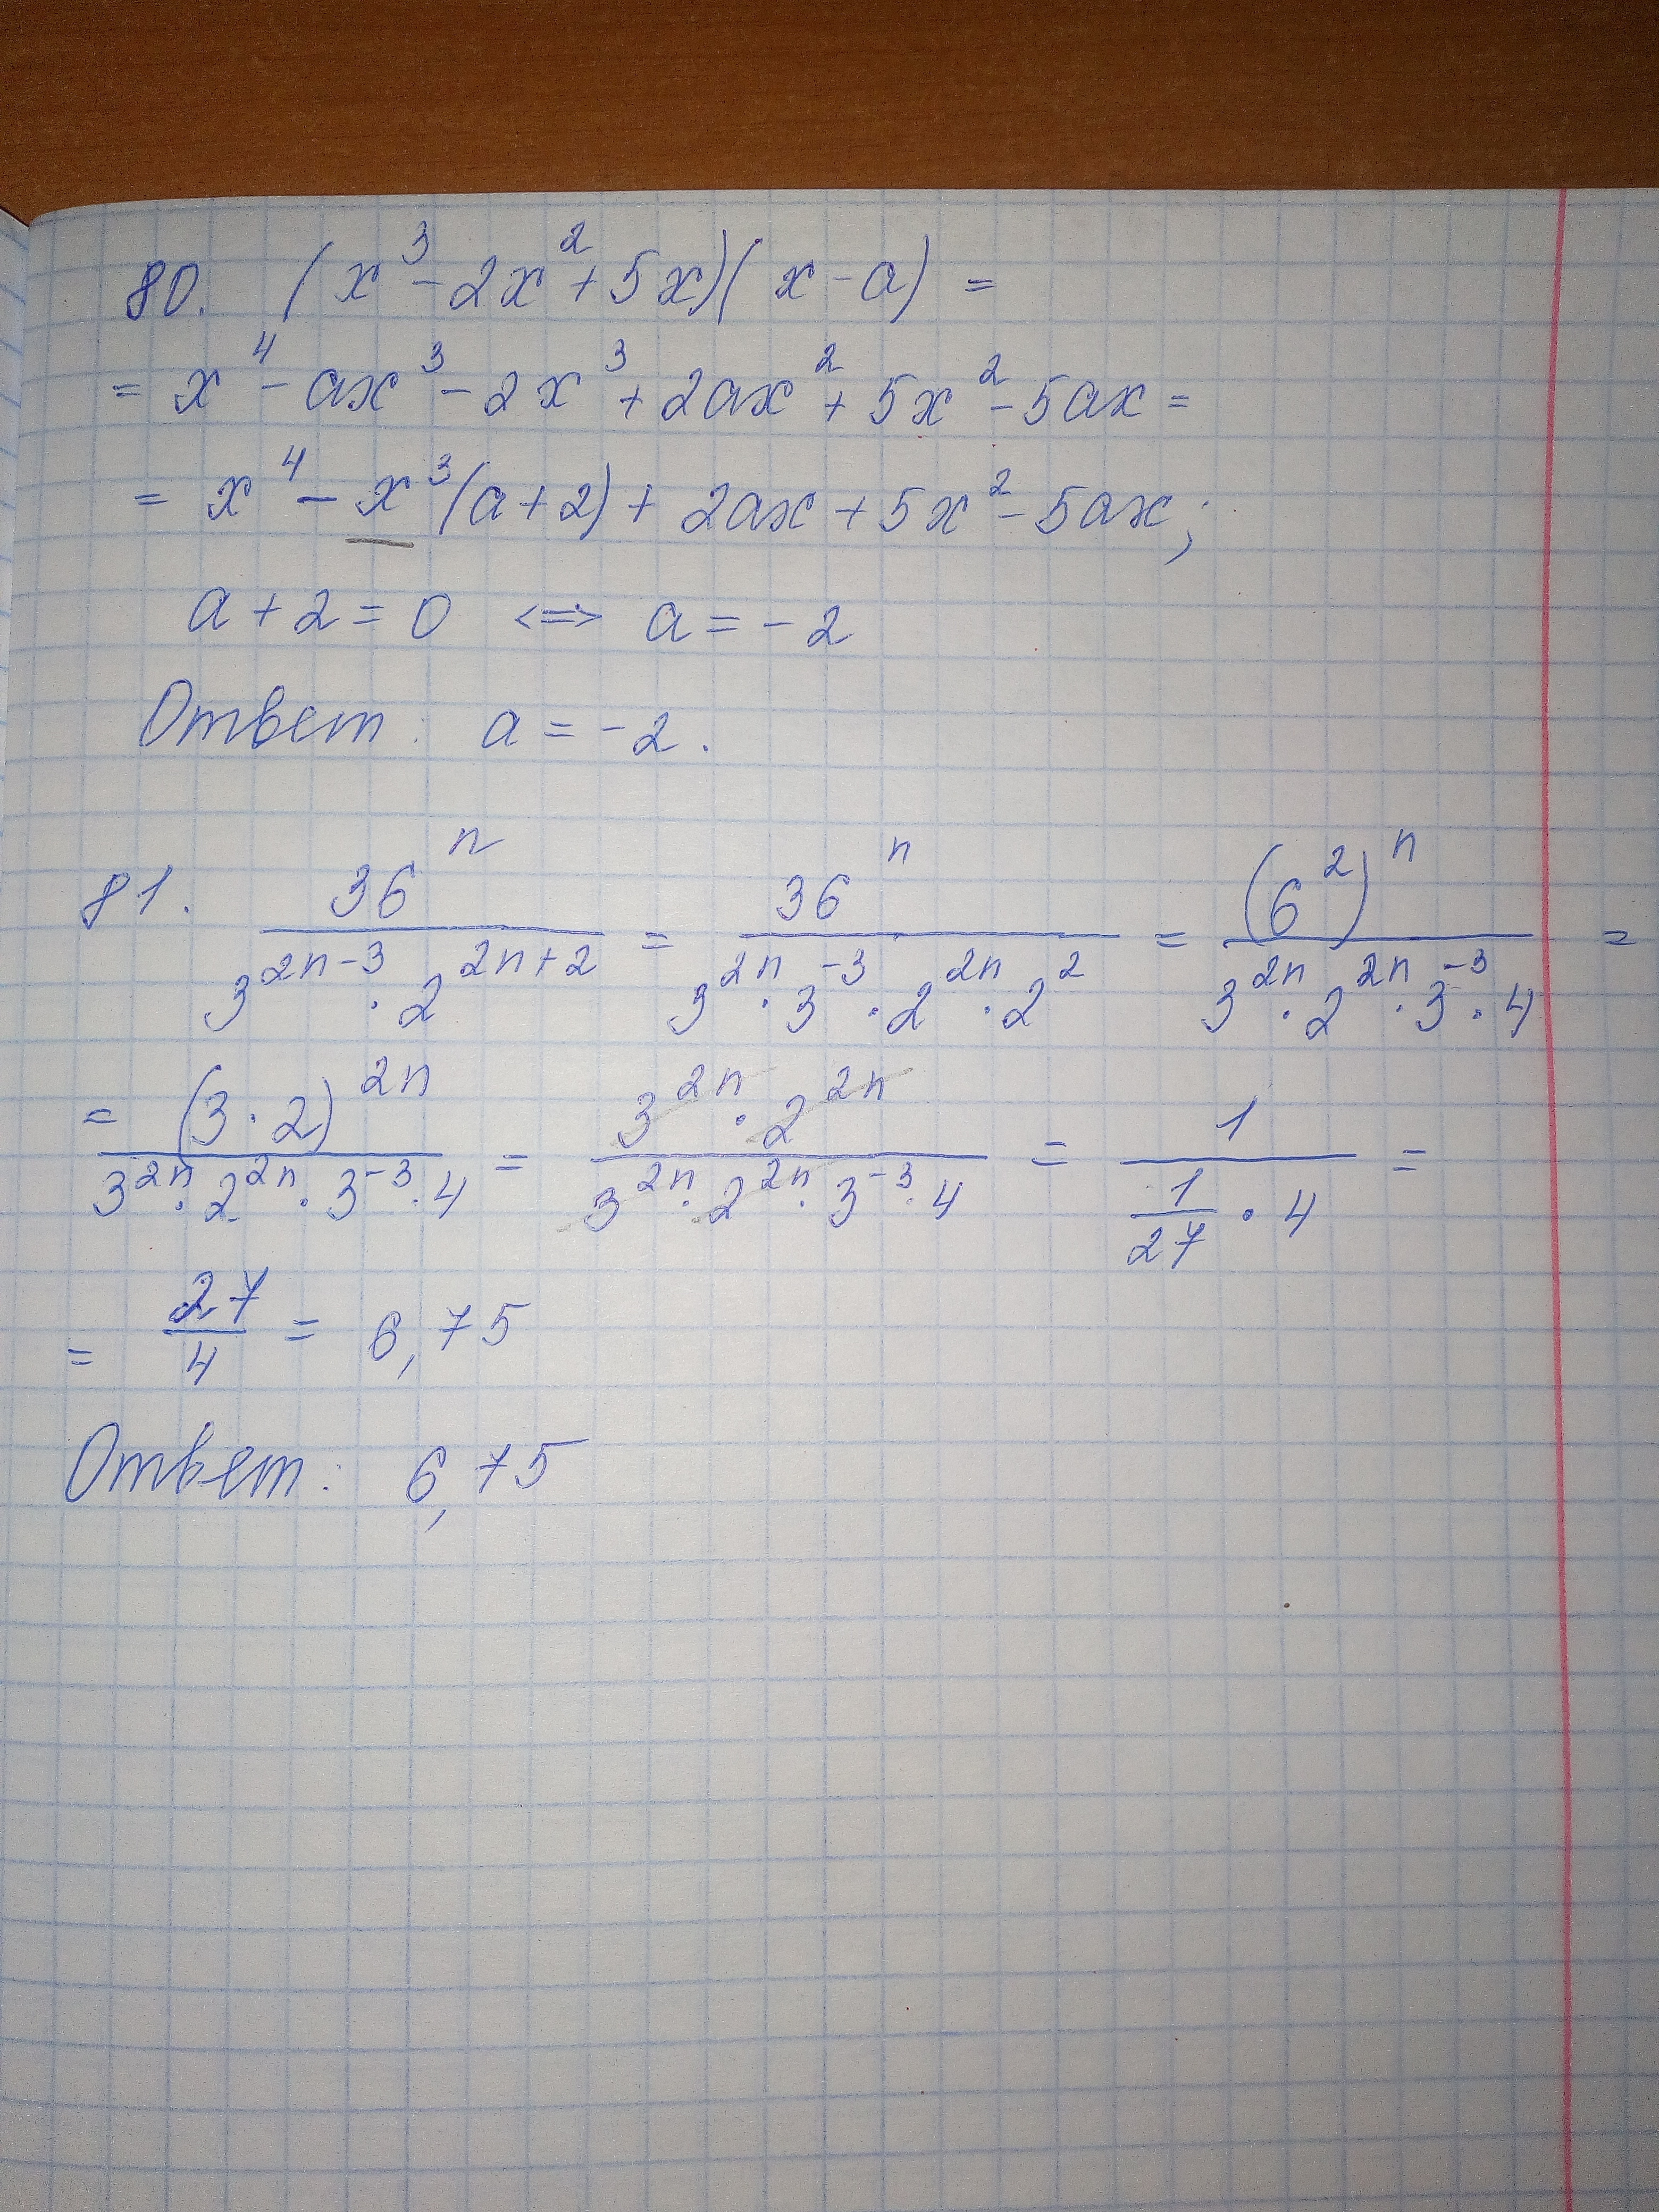 80. (x³ - 2x² + 5x)(x - a) =
= x⁴ - ax³ - 2x³ + 2ax² + 5x² - 5ax =
= x⁴ - x³(a + 2) + 2ax + 5x² - 5ax;
a + 2 = 0 <=> a = -2
Ответ: a = -2.
81. 36ⁿ / (3²ⁿ⁻³ · 2²ⁿ⁺²) = 36ⁿ / (3²ⁿ · 3⁻³ · 2²ⁿ · 2²) = (6²)ⁿ / (3²ⁿ · 2²ⁿ · 3⁻³ · 4) =
= (3 · 2)²ⁿ / (3²ⁿ · 2²ⁿ · 3⁻³ · 4) = 3²ⁿ · 2²ⁿ / (3²ⁿ · 2²ⁿ · 3⁻³ · 4) = 1 / (1/27 · 4) =
= 27/4 = 6,75
Ответ: 6,75